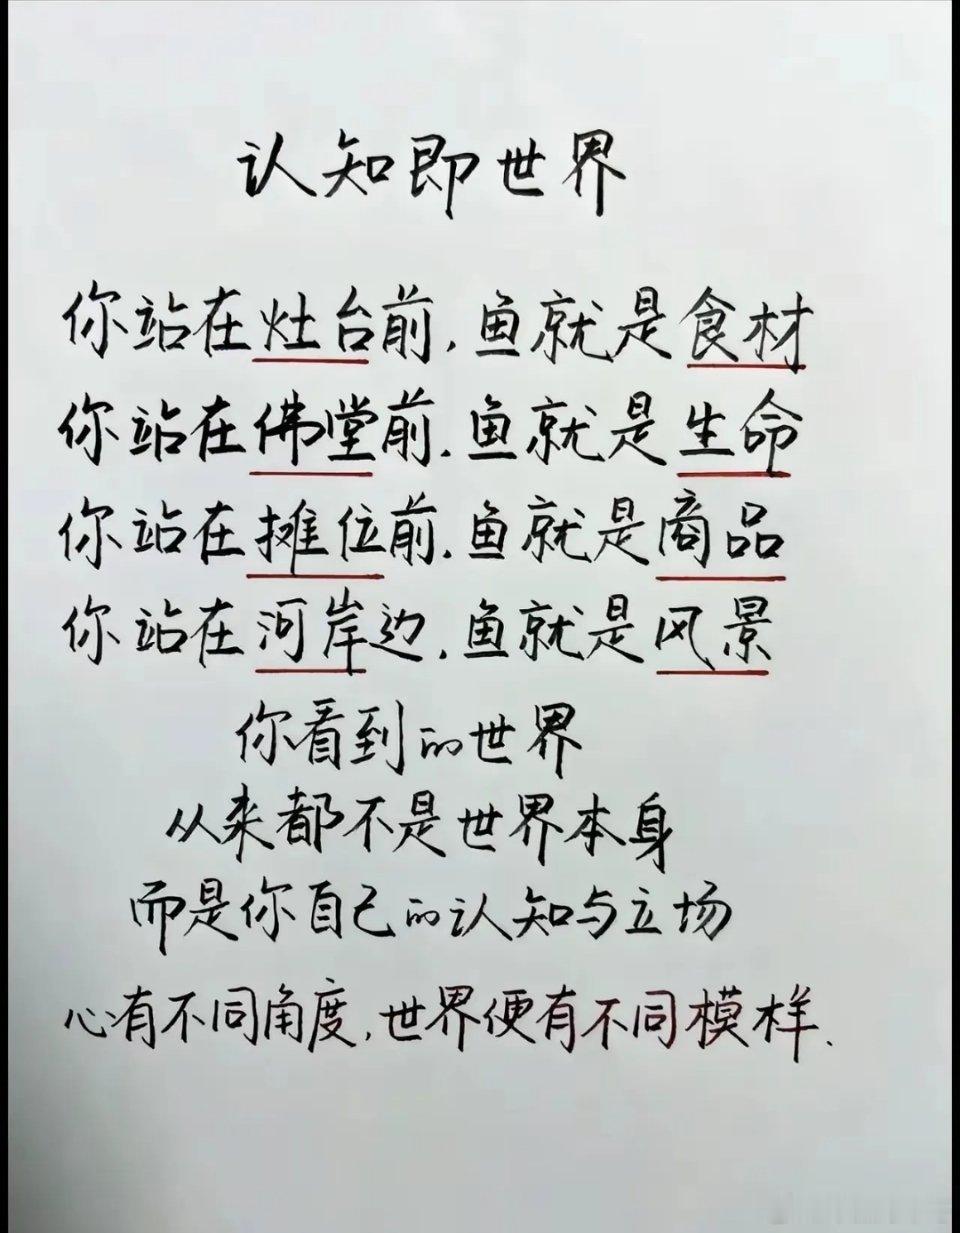 认知即世界
你站在灶台前,鱼就是食材
你站在佛堂前,鱼就是生命
你站在摊位前,鱼就是商品
你站在河岸边,鱼就是风景
你看到的世界
从来都不是世界本身
而是你自己的认知与立场
心有不同角度,世界便有不同模样.